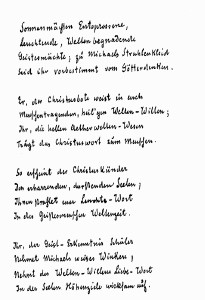 Sonnenmächten Entsprossene,
Leuchtende, Welten begnadende
Geistermächte; zu Michaels Strahlenkleid
Seid ihr vorbestimmt vom Götterdenken.
Er, der Christusbote weist in euch
Menschentragenden, heil'gen Welten-Willen;
Ihr, die hellen Aetherwelten-Wesen
Trägt das Christuswort zum Menschen.
So erscheint der Christuskünder
Den erharrenden, durstenden Seelen;
Ihnen strahlet euer Leuchte-Wort
In des Geistesmenschen Weltenzeit.
Ihr, der Geist-Erkenntnis Schüler
Nehmet Michaels weises Winken;
Nehmt des Welten-Willens Liebe-Wort
In der Seelen Höhenziele wirksam auf.